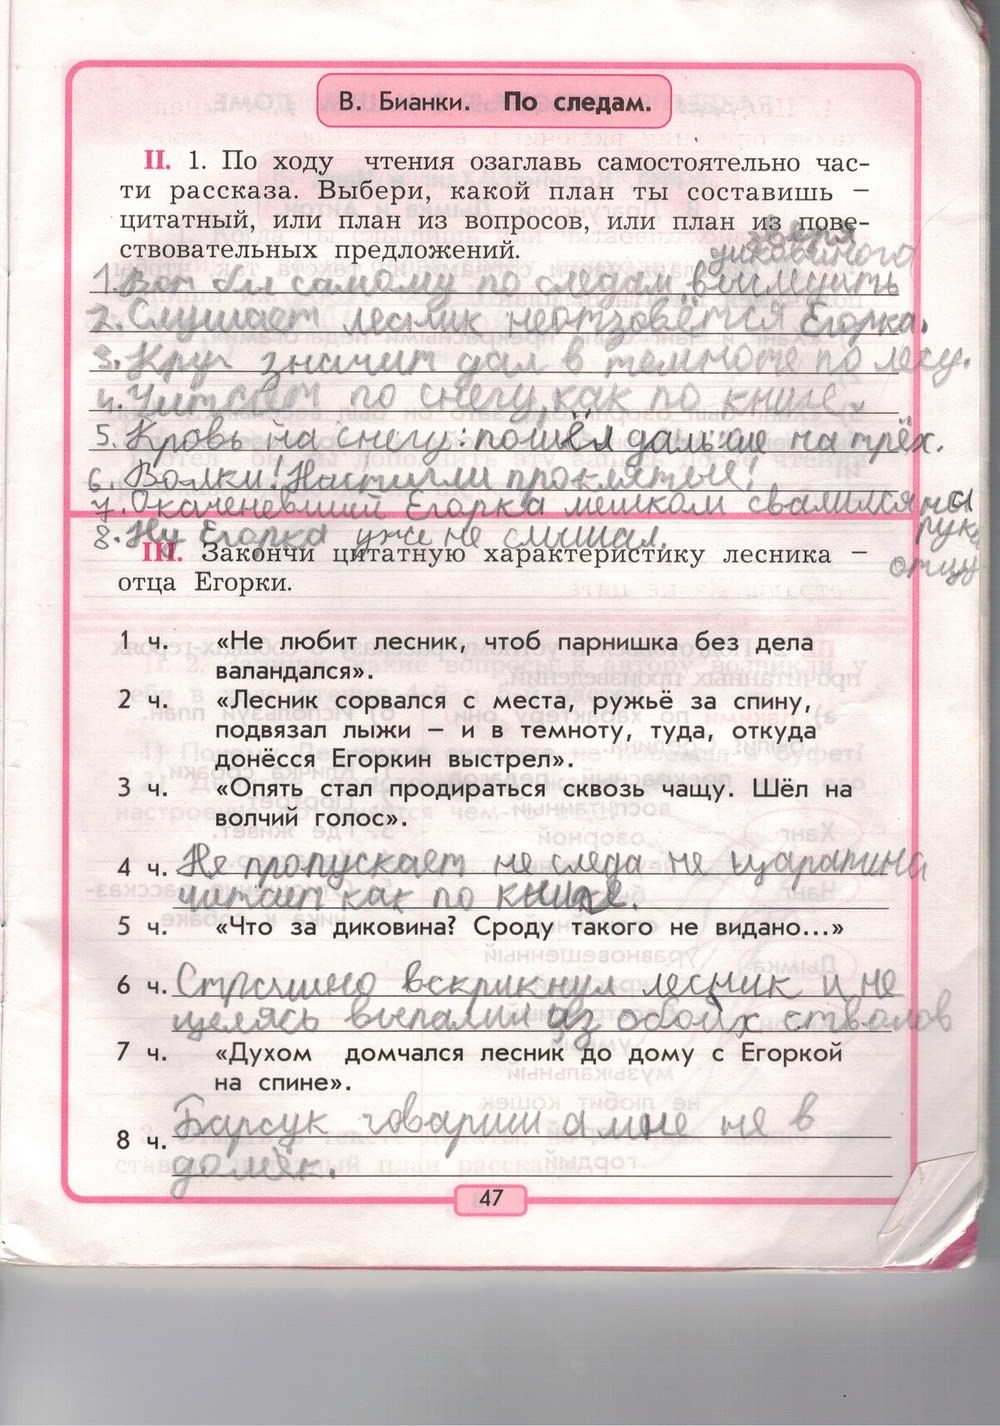 В. Бианки. По следам.
II. 1. По ходу чтения озаглавь самостоятельно час-
ти рассказа. Выбери, какой план ты составишь –
цитатный, или план из вопросов, или план из пове-
ствовательных предложений.
зверя
диковиного
1. Вот бы самому по следам выследить
2. Слушает лесник неотзовётся Егорка.
3. Круг значит дал в темноте по лесу.
4. Читает по снегу, как по книге.
5. Кровь на снегу: пошёл дальше на трёх.
6. Волки! Настигли проклятые!
7. Окаченевший Егорка мешком свалился на
руки
отцу
8. Ну Егорка уже не слышал.
III. Закончи цитатную характеристику лесника –
отца Егорки.
1 ч. «Не любит лесник, чтоб парнишка без дела
валандался».
2 ч. «Лесник сорвался с места, ружьё за спину,
подвязал лыжи – и в темноту, туда, откуда
донёсся Егоркин выстрел».
3 ч. «Опять стал продираться сквозь чащу. Шёл на
волчий голос».
4 ч. Не пропускает не следа не щарапина
читает как по книге.
5 ч. «Что за диковина? Сроду такого не видано...»
6 ч. Страшно вскрикнул лесник и не
целясь выпалил из обоих стволов
7 ч. «Духом домчался лесник до дому с Егоркой
на спине».
8 ч. Барсук говариш а мне не в
домёк.
47